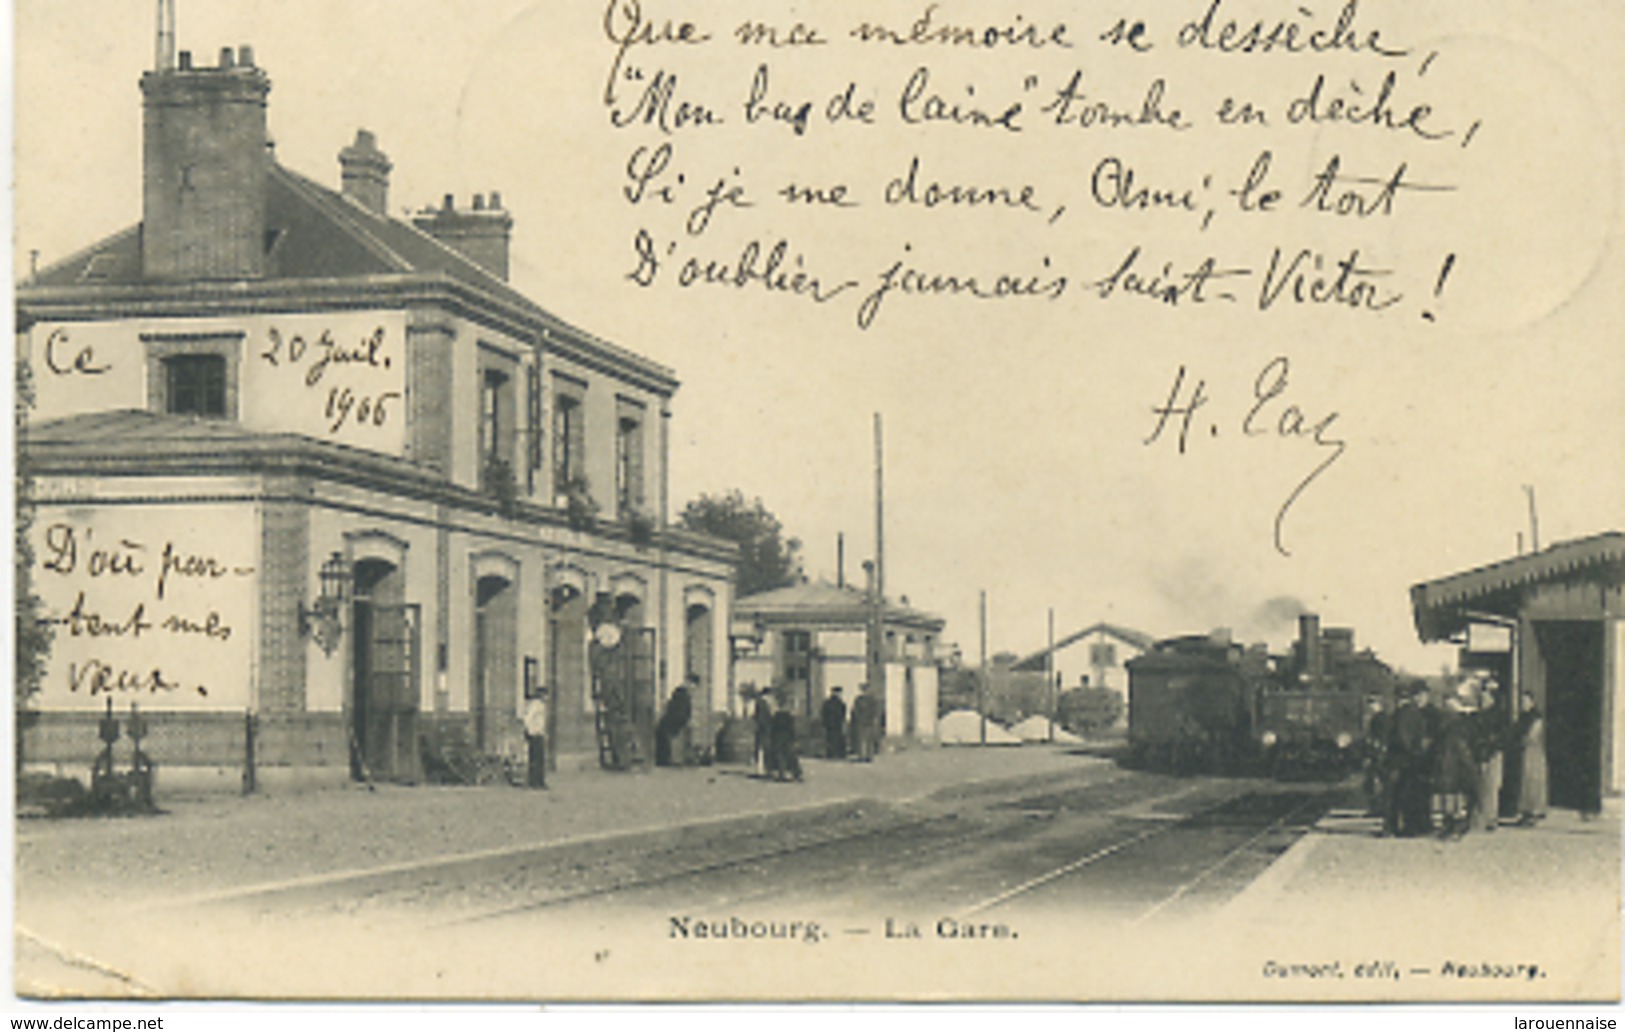 Que ma mémoire se dessèche,
"Mon bas de laine" tombe en dèche,
Si je me donne, Ami, le tort
D'oublier jamais Saint-Victor !
H.
Ce 20 Juil.
1906
D'où par-
tent mes
vœux.
Neubourg. — La Gare.
Dumont, édit, — Neubourg.
www.delcampe.net
larouennaise